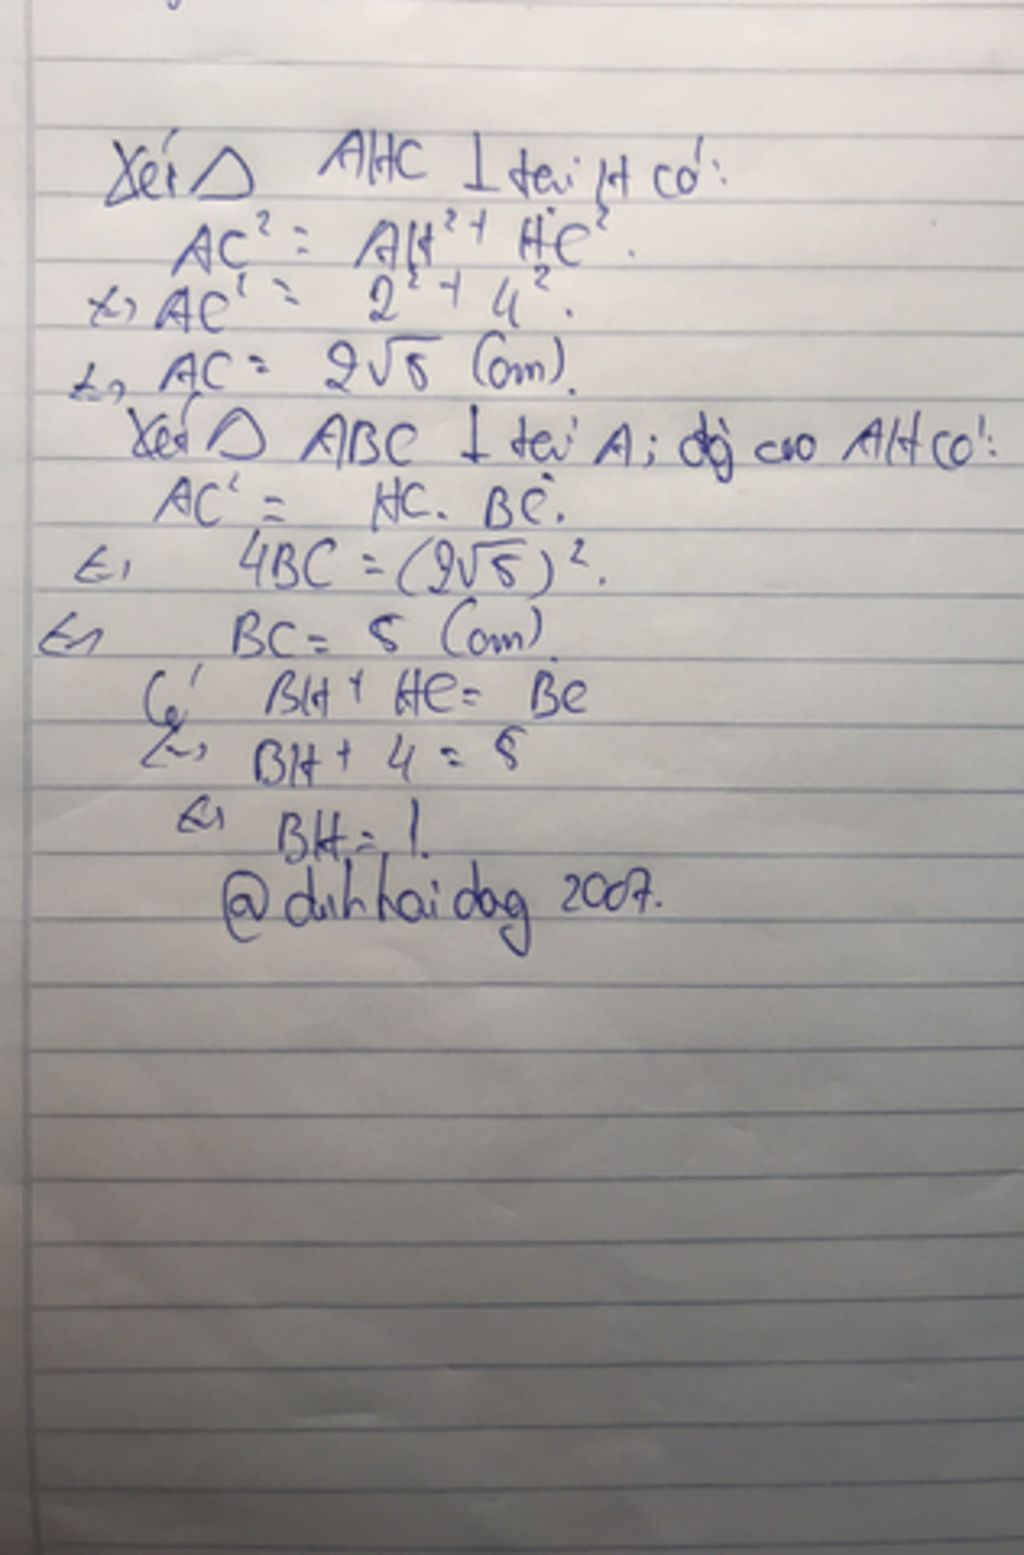 Xét Δ AHC ⊥ tại H có:
AC² = AH² + HC².
⇔ AC² = 2² + 4².
⇔ AC = 2√5 (cm).
Xét Δ ABC ⊥ tại A; đg cao AH có:
AC² = HC. BC.
⇔ 4BC = (2√5)².
⇔ BC = 5 (cm)
Có BH + HC = BC
⇔ BH + 4 = 5
⇔ BH = 1.
@duhhaidag 2007.